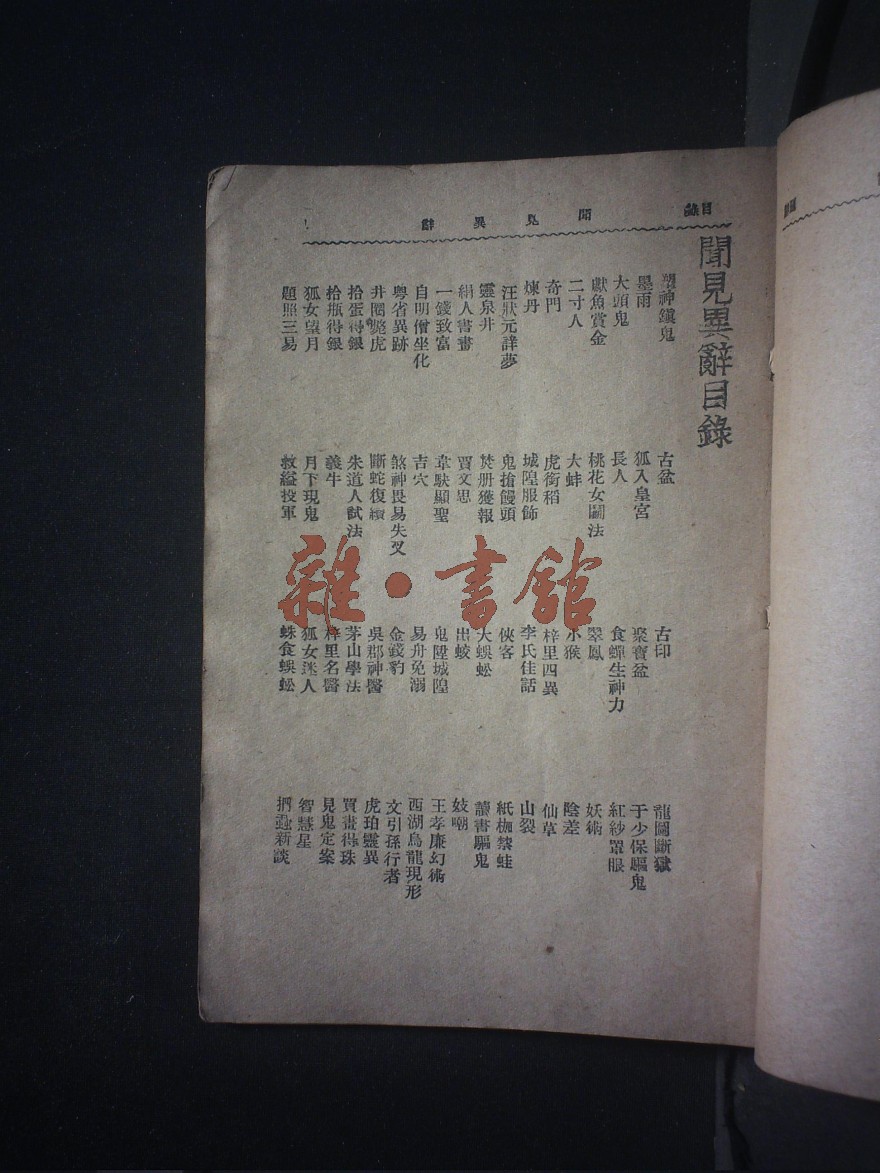 目錄 聞見異辭 一
聞見異辭目錄
塑神鎭鬼 古盆 古印 龍圖斷獄
墨雨 狐入皇宮 聚寶盆 于少保驅鬼
大頭鬼 長人 食蟬生神力 紅紗罩眼
獻魚賞金 桃花女鬭法 翠鳳 妖術
二寸人 大蚌 小猴 陰差
奇門 虎銜稻 梓里四異 仙草
煉丹 城隍服飾 李氏佳話 山裂
汪狀元詳夢 鬼搶饅頭 俠客 紙枷禁蛙
靈泉井 焚册獲報 大蜈蚣 讀書驅鬼
絹人書畫 賈文思 出蛟 妓嘲
一錢致富 韋馱顯聖 鬼陞城隍 王孝廉幻術
自明僧坐化 吉穴 易舟免溺 西湖烏龍現形
粵省異跡 煞神畏易失叉 金錢豹 文引孫行者
井圈斃虎 斷蛇復續 吳郡神醫 虎珀靈異
拾蛋得銀 朱道人試法 茅山學法 買畫得珠
拾瓶得銀 義牛 梓里名醫 見鬼定案
狐女望月 月下現鬼 狐女迷人 智慧星
題照三易 救縊投軍 蛛食蜈蚣 捫蝨新談
雜·書館